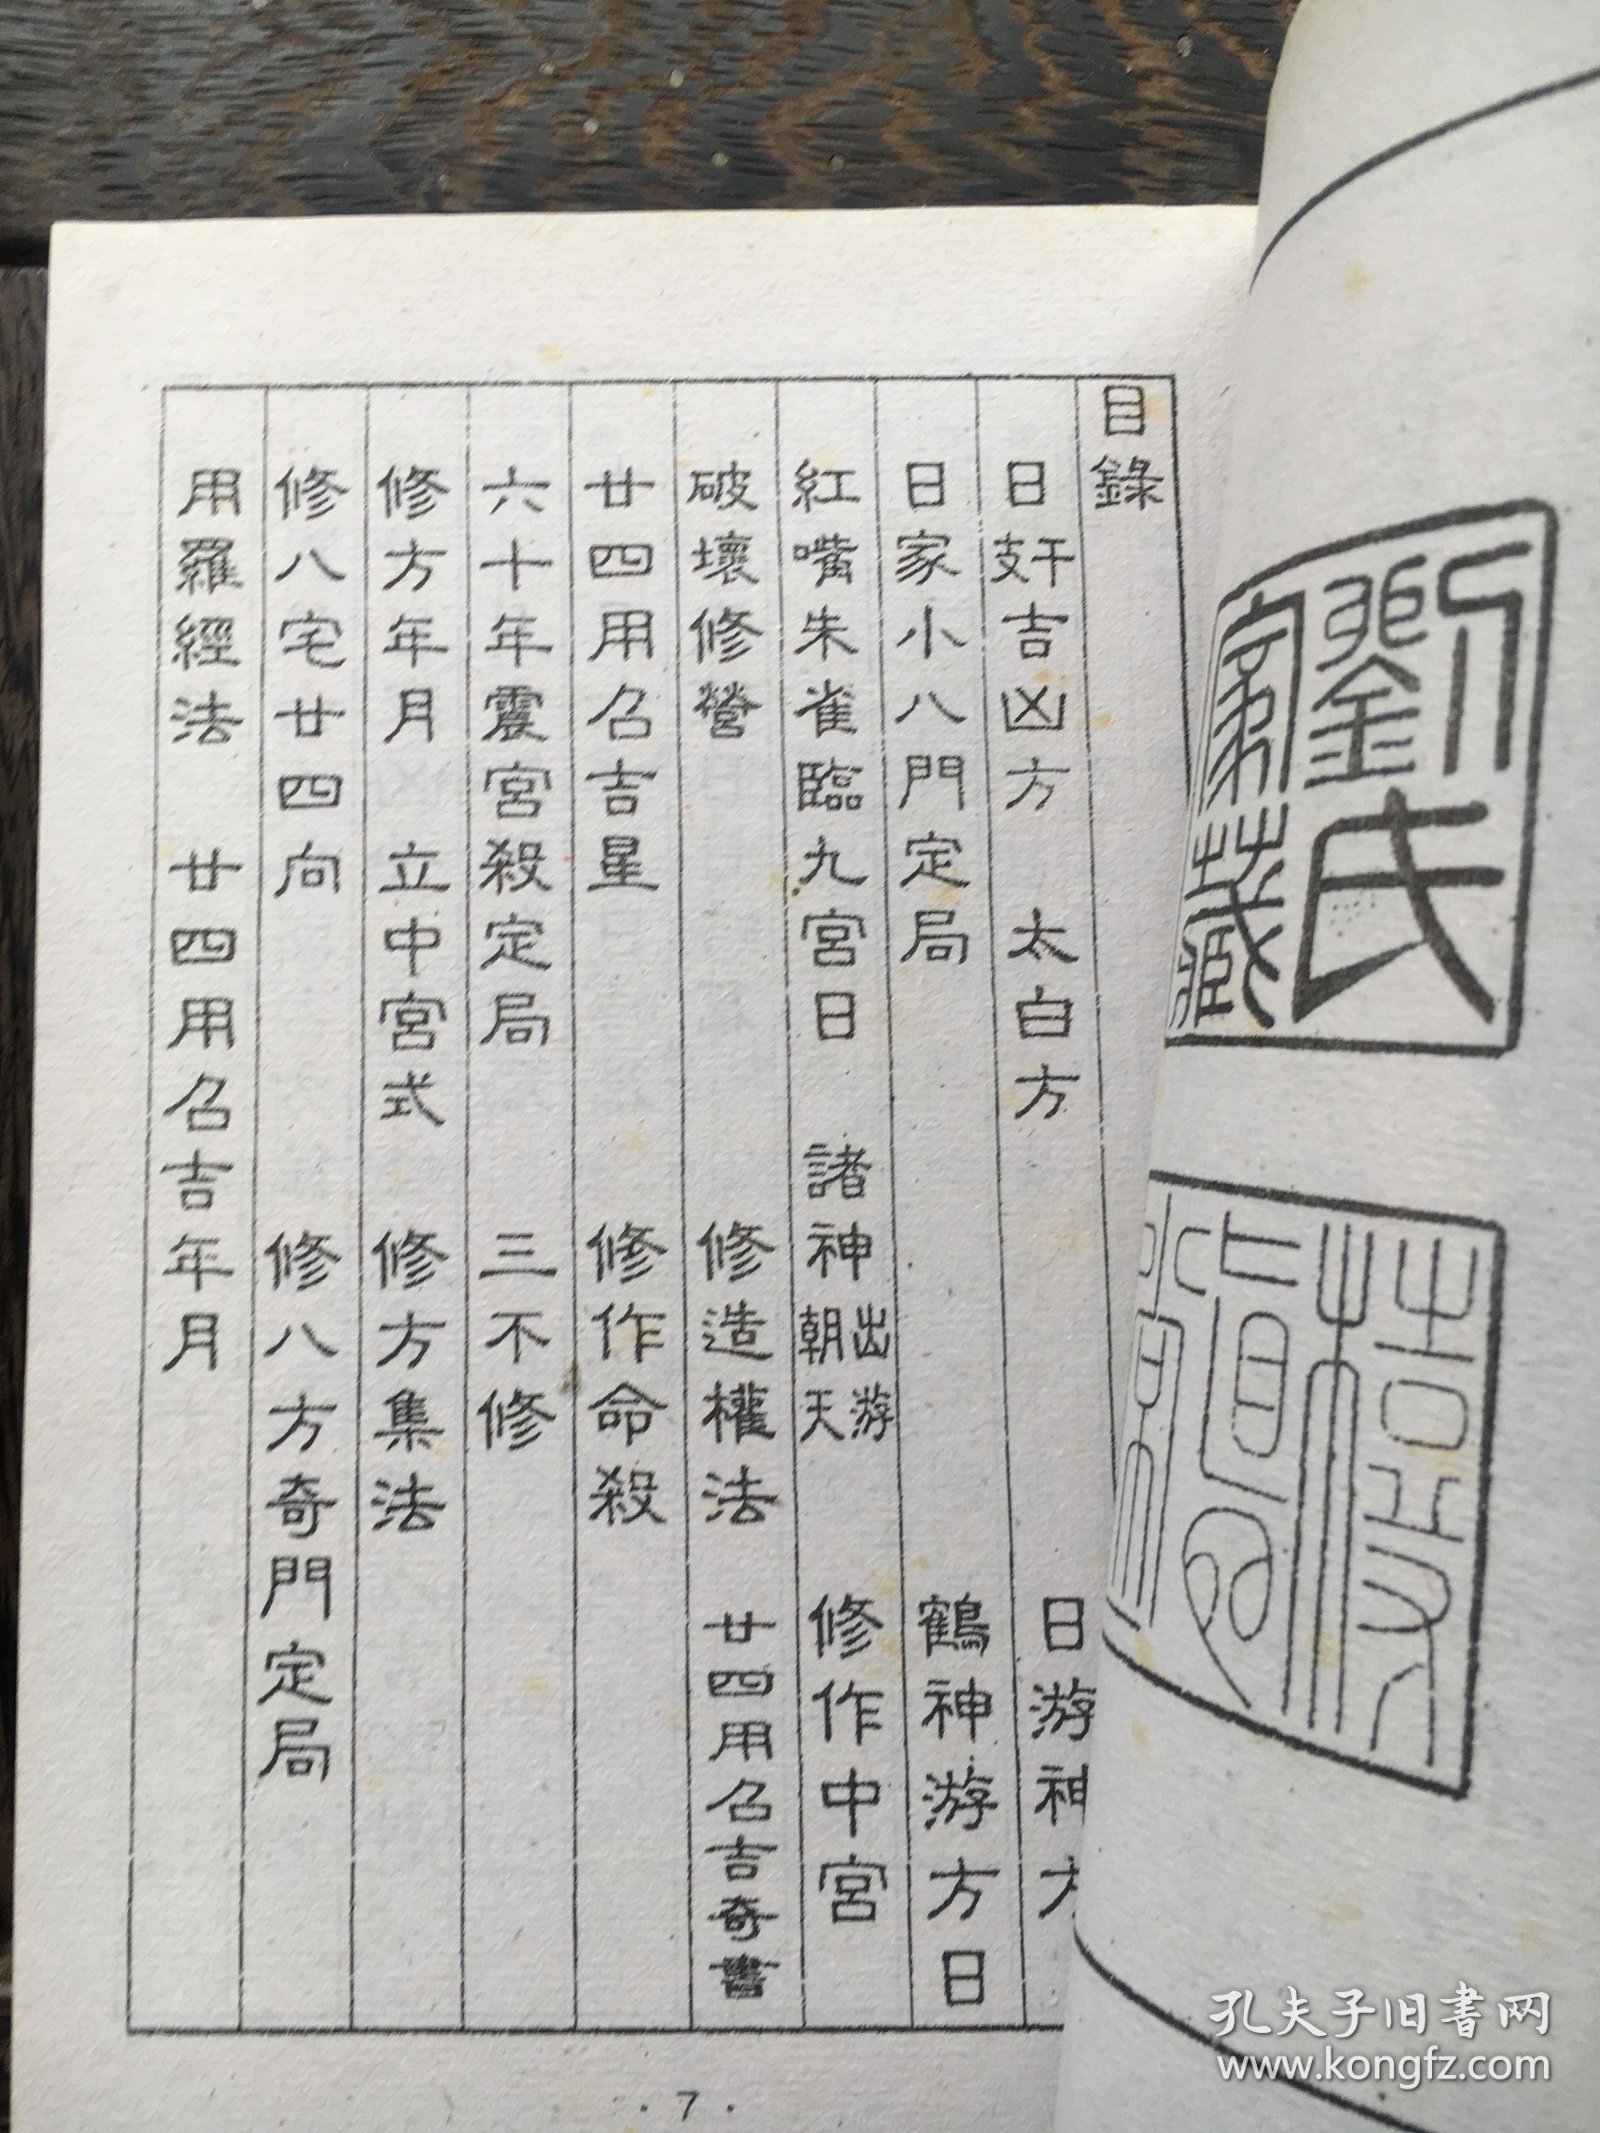 目錄
日干支吉凶方　太白方　日游神方
日家小八門定局　鶴神游方日
紅嘴朱雀臨九宮日　諸神出游朝天　修作中宮
破壞修營　修造權法　廿四用名吉奇書
廿四用名吉星　修作命殺
六十年震宮殺定局　三不修
修方年月　立中宮式　修方集法
修八宅廿四向　修八方奇門定局
用羅經法　廿四用名吉年月
·7·
劉氏
藏
孔夫子旧書网
www.kongfz.com